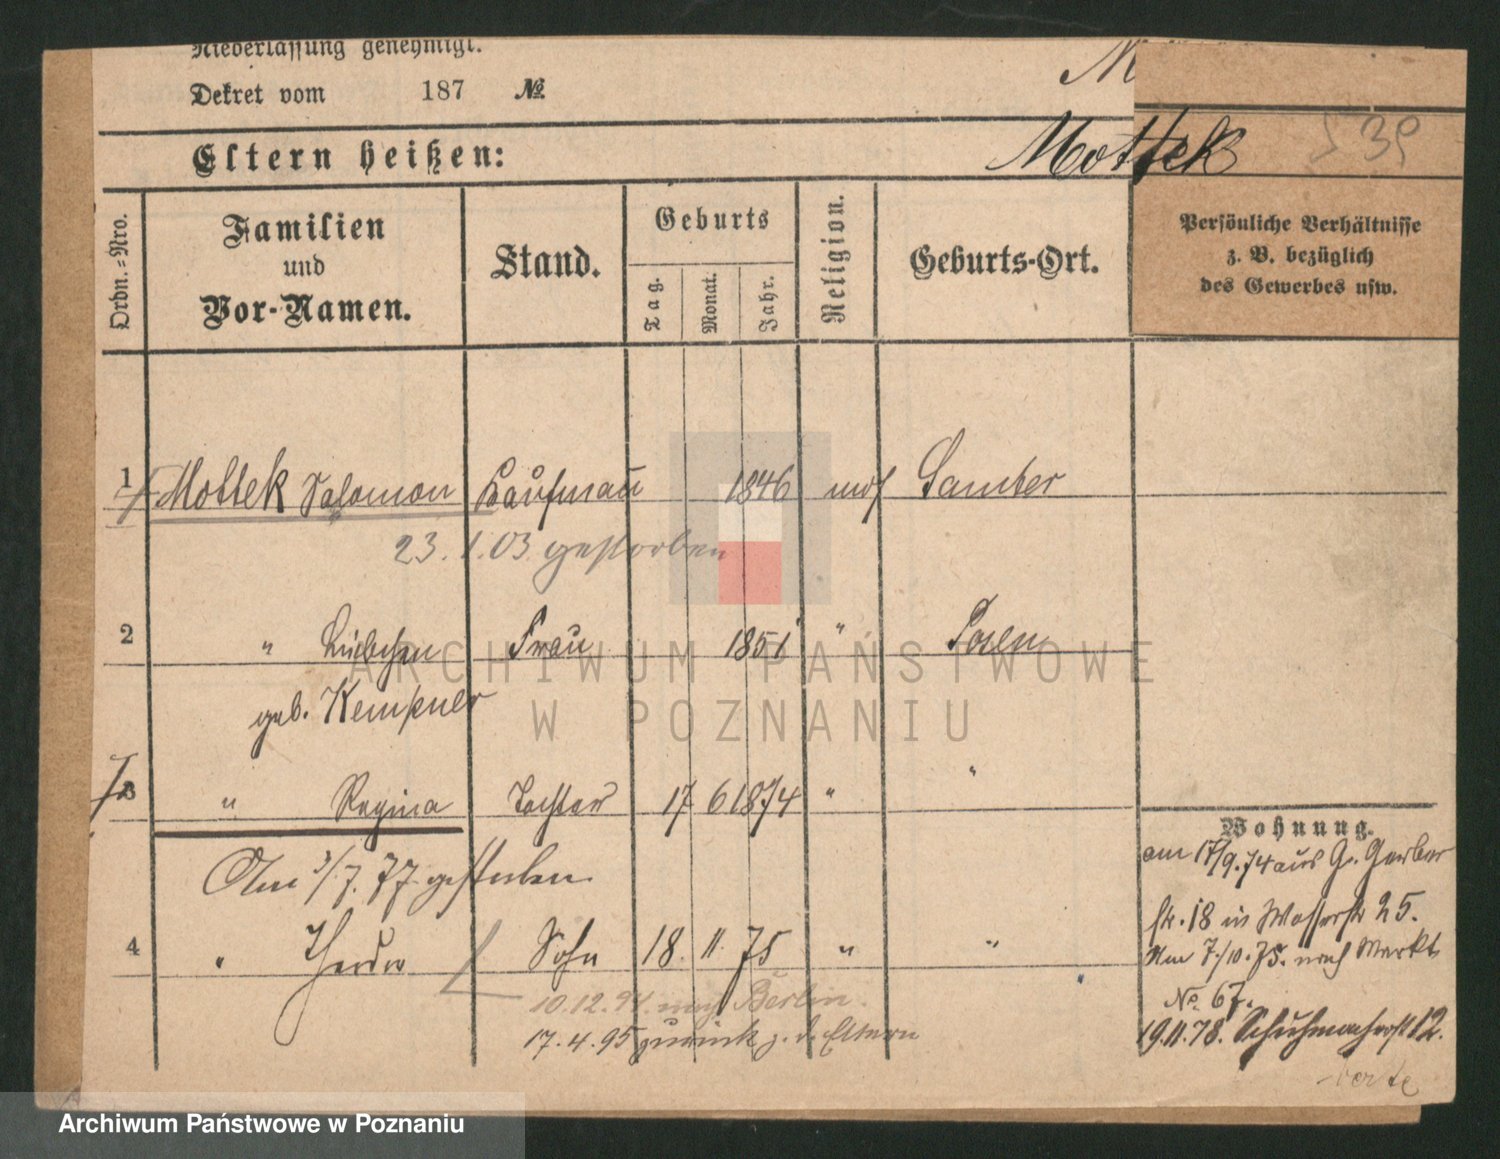 Niederlassung genehmigt.
Dekret vom 187 №
Eltern heißen: Mottek 39
Ordn.-Nro.
Familien und Vor-Namen.
Stand.
Geburts
Tag. Monat. Jahr.
Religion.
Geburts-Ort.
Persönliche Verhältnisse
z. B. bezüglich
des Gewerbes usw.
1 Mottek Salomon Kaufmau 1846 mos Samter
23.1.03 gestorben
2 " Liebchen Frau 1851 " Posen
geb. Kempner
3 " Regina Tochter 17 6 1874 " "
Am 3/7. 77 gestorben
4 " Sohn 18. 11. 75 " "
10.12.94 nach Berlin.
17.4.95 zurück z. d. Eltern
Wohnung.
am 17/9.74 aus Gr. Gerber
str. 18 in Wasserstr 25.
Am 7/10.75. nach Markt
No. 67.
19.11.78. Schuhmacherst 12.
verte
ARCHIWUM PAŃSTWOWE
W POZNANIU
Archiwum Państwowe w Poznaniu